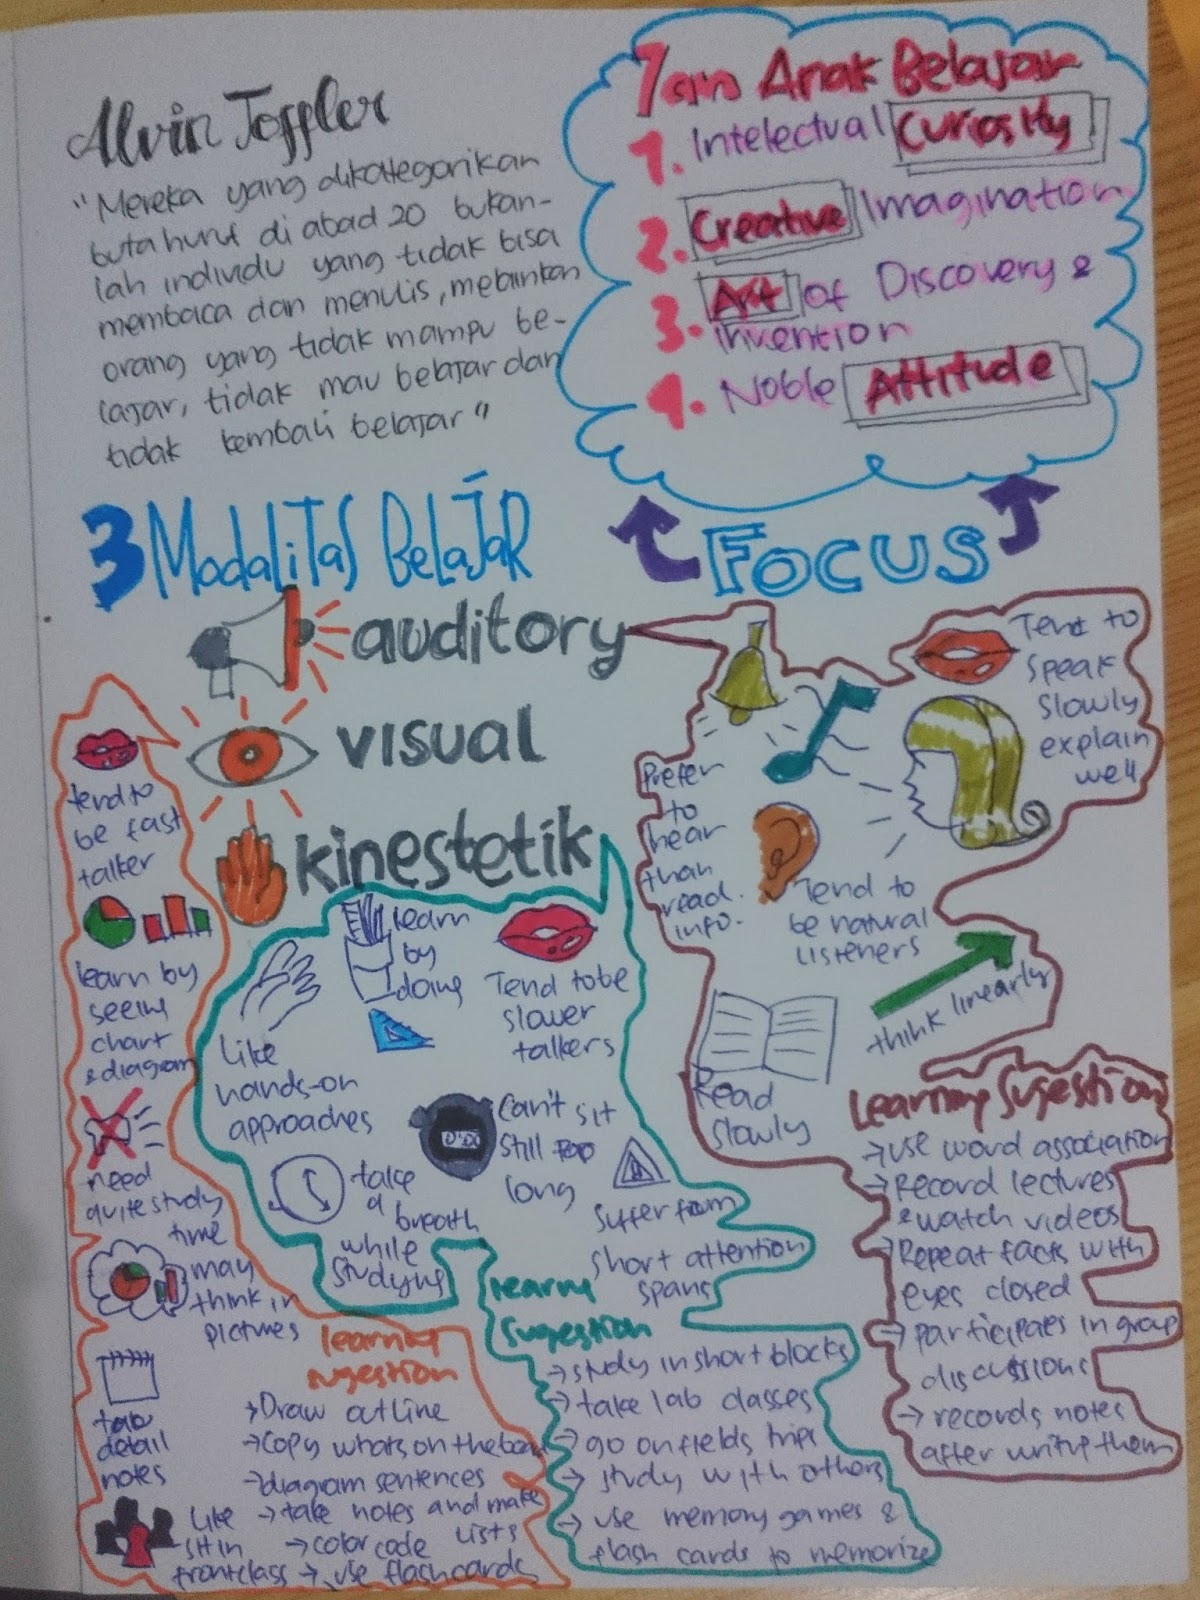 Alvin Toffler
"Mereka yang dikategorikan
buta huruf di abad 20 bukan-
lah individu yang tidak bisa
membaca dan menulis, melainkan
orang yang tidak mampu be-
lajar, tidak mau belajar dan
tidak kembali belajar"
Anak Belajar
1. Intelectual Curiosity
2. Creative Imagination
3. Art of Discovery &
invention
4. Noble Attitude
FOCUS
3 Modalitas Belajar
auditory
visual
kinestetik
tend to
be fast
talker
learn by
seeing
chart
& diagram
need
quite study
time
may
think in
pictures
detail
notes
Like
sit in
front class
learning
sugestion
→ Draw outline
→ Copy whats on the board
→ diagram sentences
→ take notes and make
lists
→ color code
→ use flashcards
learn
by
doing
Tend to be
slower
talkers
Like
hands-on
approaches
Can't sit
still too
long
take
a
breath
while
studying
Suffer from
short attention
spans
learning
sugestion
→ study in short blocks
→ take lab classes
→ go on fields trips
→ study with others
→ use memory games &
flash cards to memorize
Tend to
speak
slowly
explain
well
Prefer
to
hear
than
read
info.
Tend to
be natural
listeners
think linearly
Read
slowly
Learning Sugestion
→ use word association
→ Record lectures
& watch videos
→ Repeat facts with
eyes closed
→ participates in group
discussions
→ records notes
after them